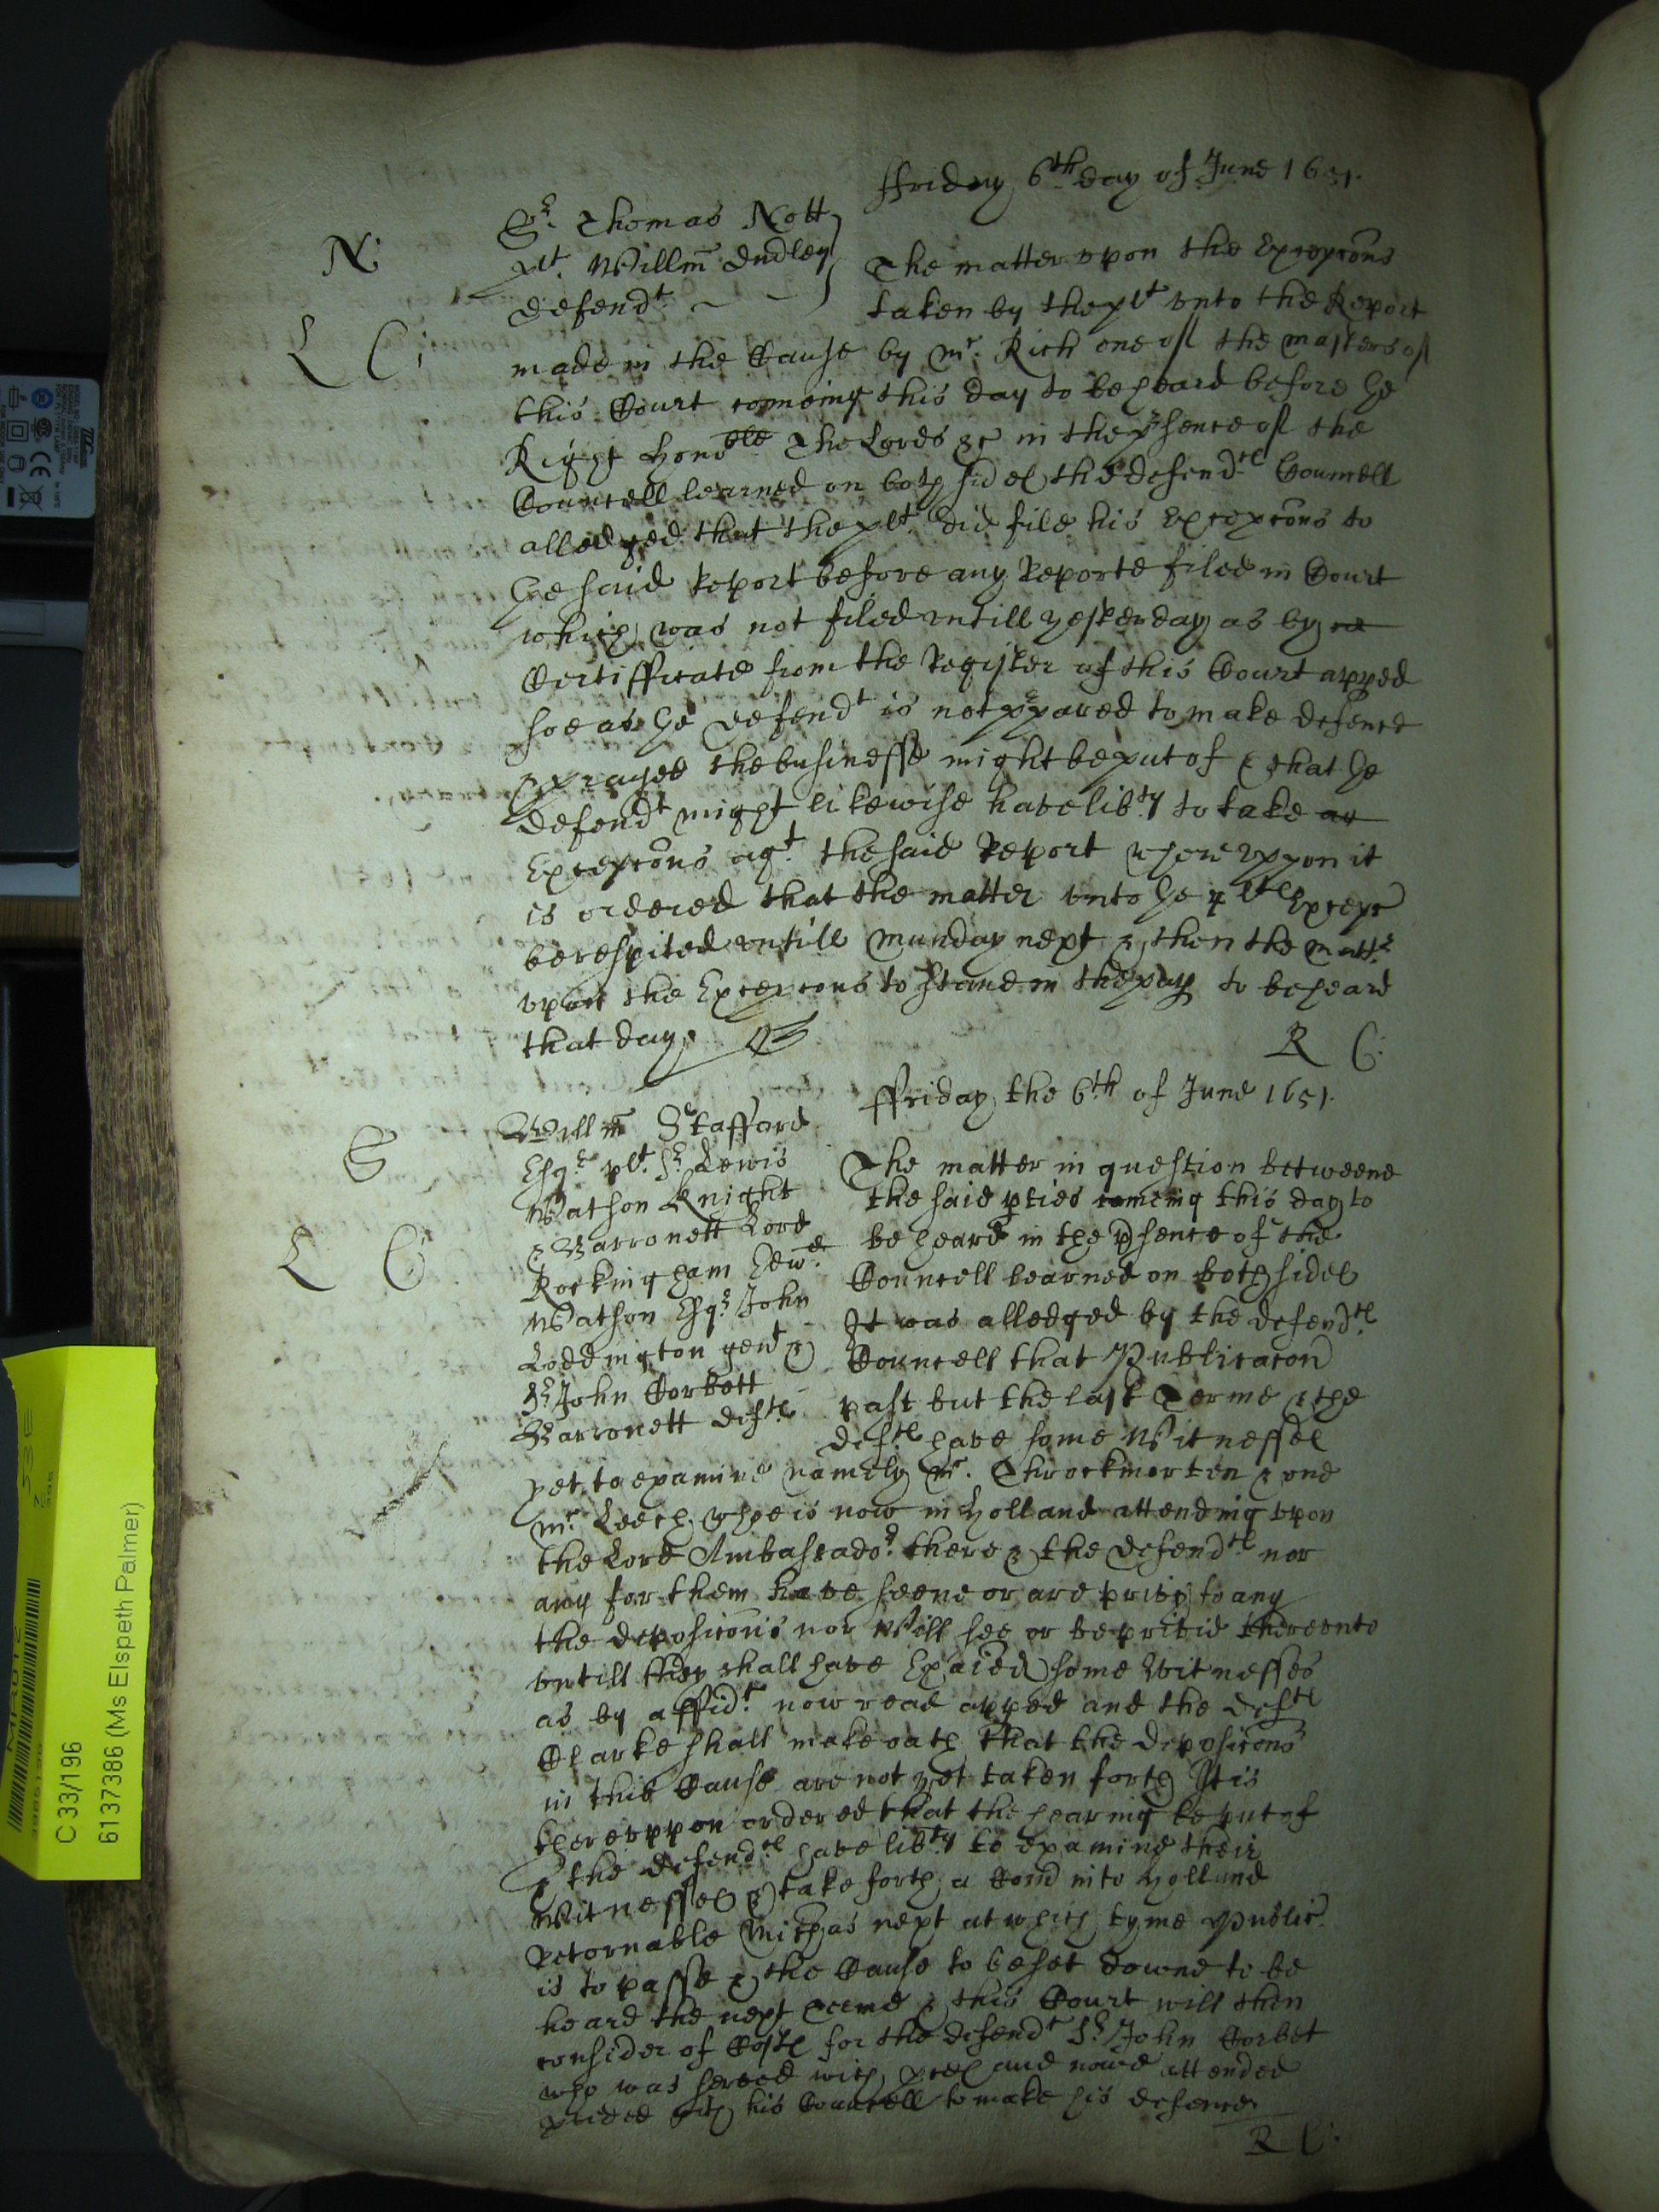 ffriday 6th day of June 1651.
N:
Sr. Thomas Nott
plt. Willm Dudley
defendt.
L C:
The matter upon the Excepcons
taken by the plt unto the Report
made in the Cause by mr. Rich one of the masters of
this Court comeing this day to be heard before the
Right Honoble The Lords &c in the psence of the
Councell learned on both sides the defendtes Councell
alledged that the plt. did file his Excepcons to
the said Report before any Reporte filed in Court
which was not filed untill yesterday as by
Certifficate from the Register of this Court apped
soe as the defendt is not ppared to make defence
& prayed the businesse might be put of & that the
defendt might likewise have libty to take
Excepcons agt. the said Report whereuppon it
is ordered that the matter unto the pltes Excepc
be respited untill Munday next & then the mattr
upon the Excepcons to stand in the pap to be heard
that day.
R C:
ffriday the 6th of June 1651.
S
Willm Stafford
Esqr plt. Sr. Lewis
Watson Knight
& Barronett Lord
Rockingham Edwd
Watson Esqr John
Loddington gent &
Sr John Corbett
Barronett deftes
L C
The matter in question betweene
the said pties comeing this day to
be heard in the psence of the
Councell learned on both sides
It was alledged by the defendtes
Councell that Publicacon
past but the last Terme & the
deftes have some Witnesses
yet to examine namely mr. Throckmorten & one
mr Leech whoe is now in Holland attending upon
the Lord Ambassador there & the defendtes nor
any for them have seene or are privy to any
the deposicons nor Will see or be privie thereunto
untill they shall have Exaied some Witnesses
as by affidt now read apped and the deftes
Clarke shall make oath that the deposicons
in this Cause are not yet taken forth It is
thereuppon ordered that the hearing be put of
& the defendtes have libty to examine their
Witnesses & take forth a Comd into Holland
Retornable Michas next at which tyme Public
is to passe & the Cause to be set downe to be
heard the next Terme & this Court will then
consider of Costes for the defendt Sr. John Corbet
who was served with pces and nowe attended
pvided with his Councell to make his defence
R C:
C 33/196
6137386 (Ms Elspeth Palmer)